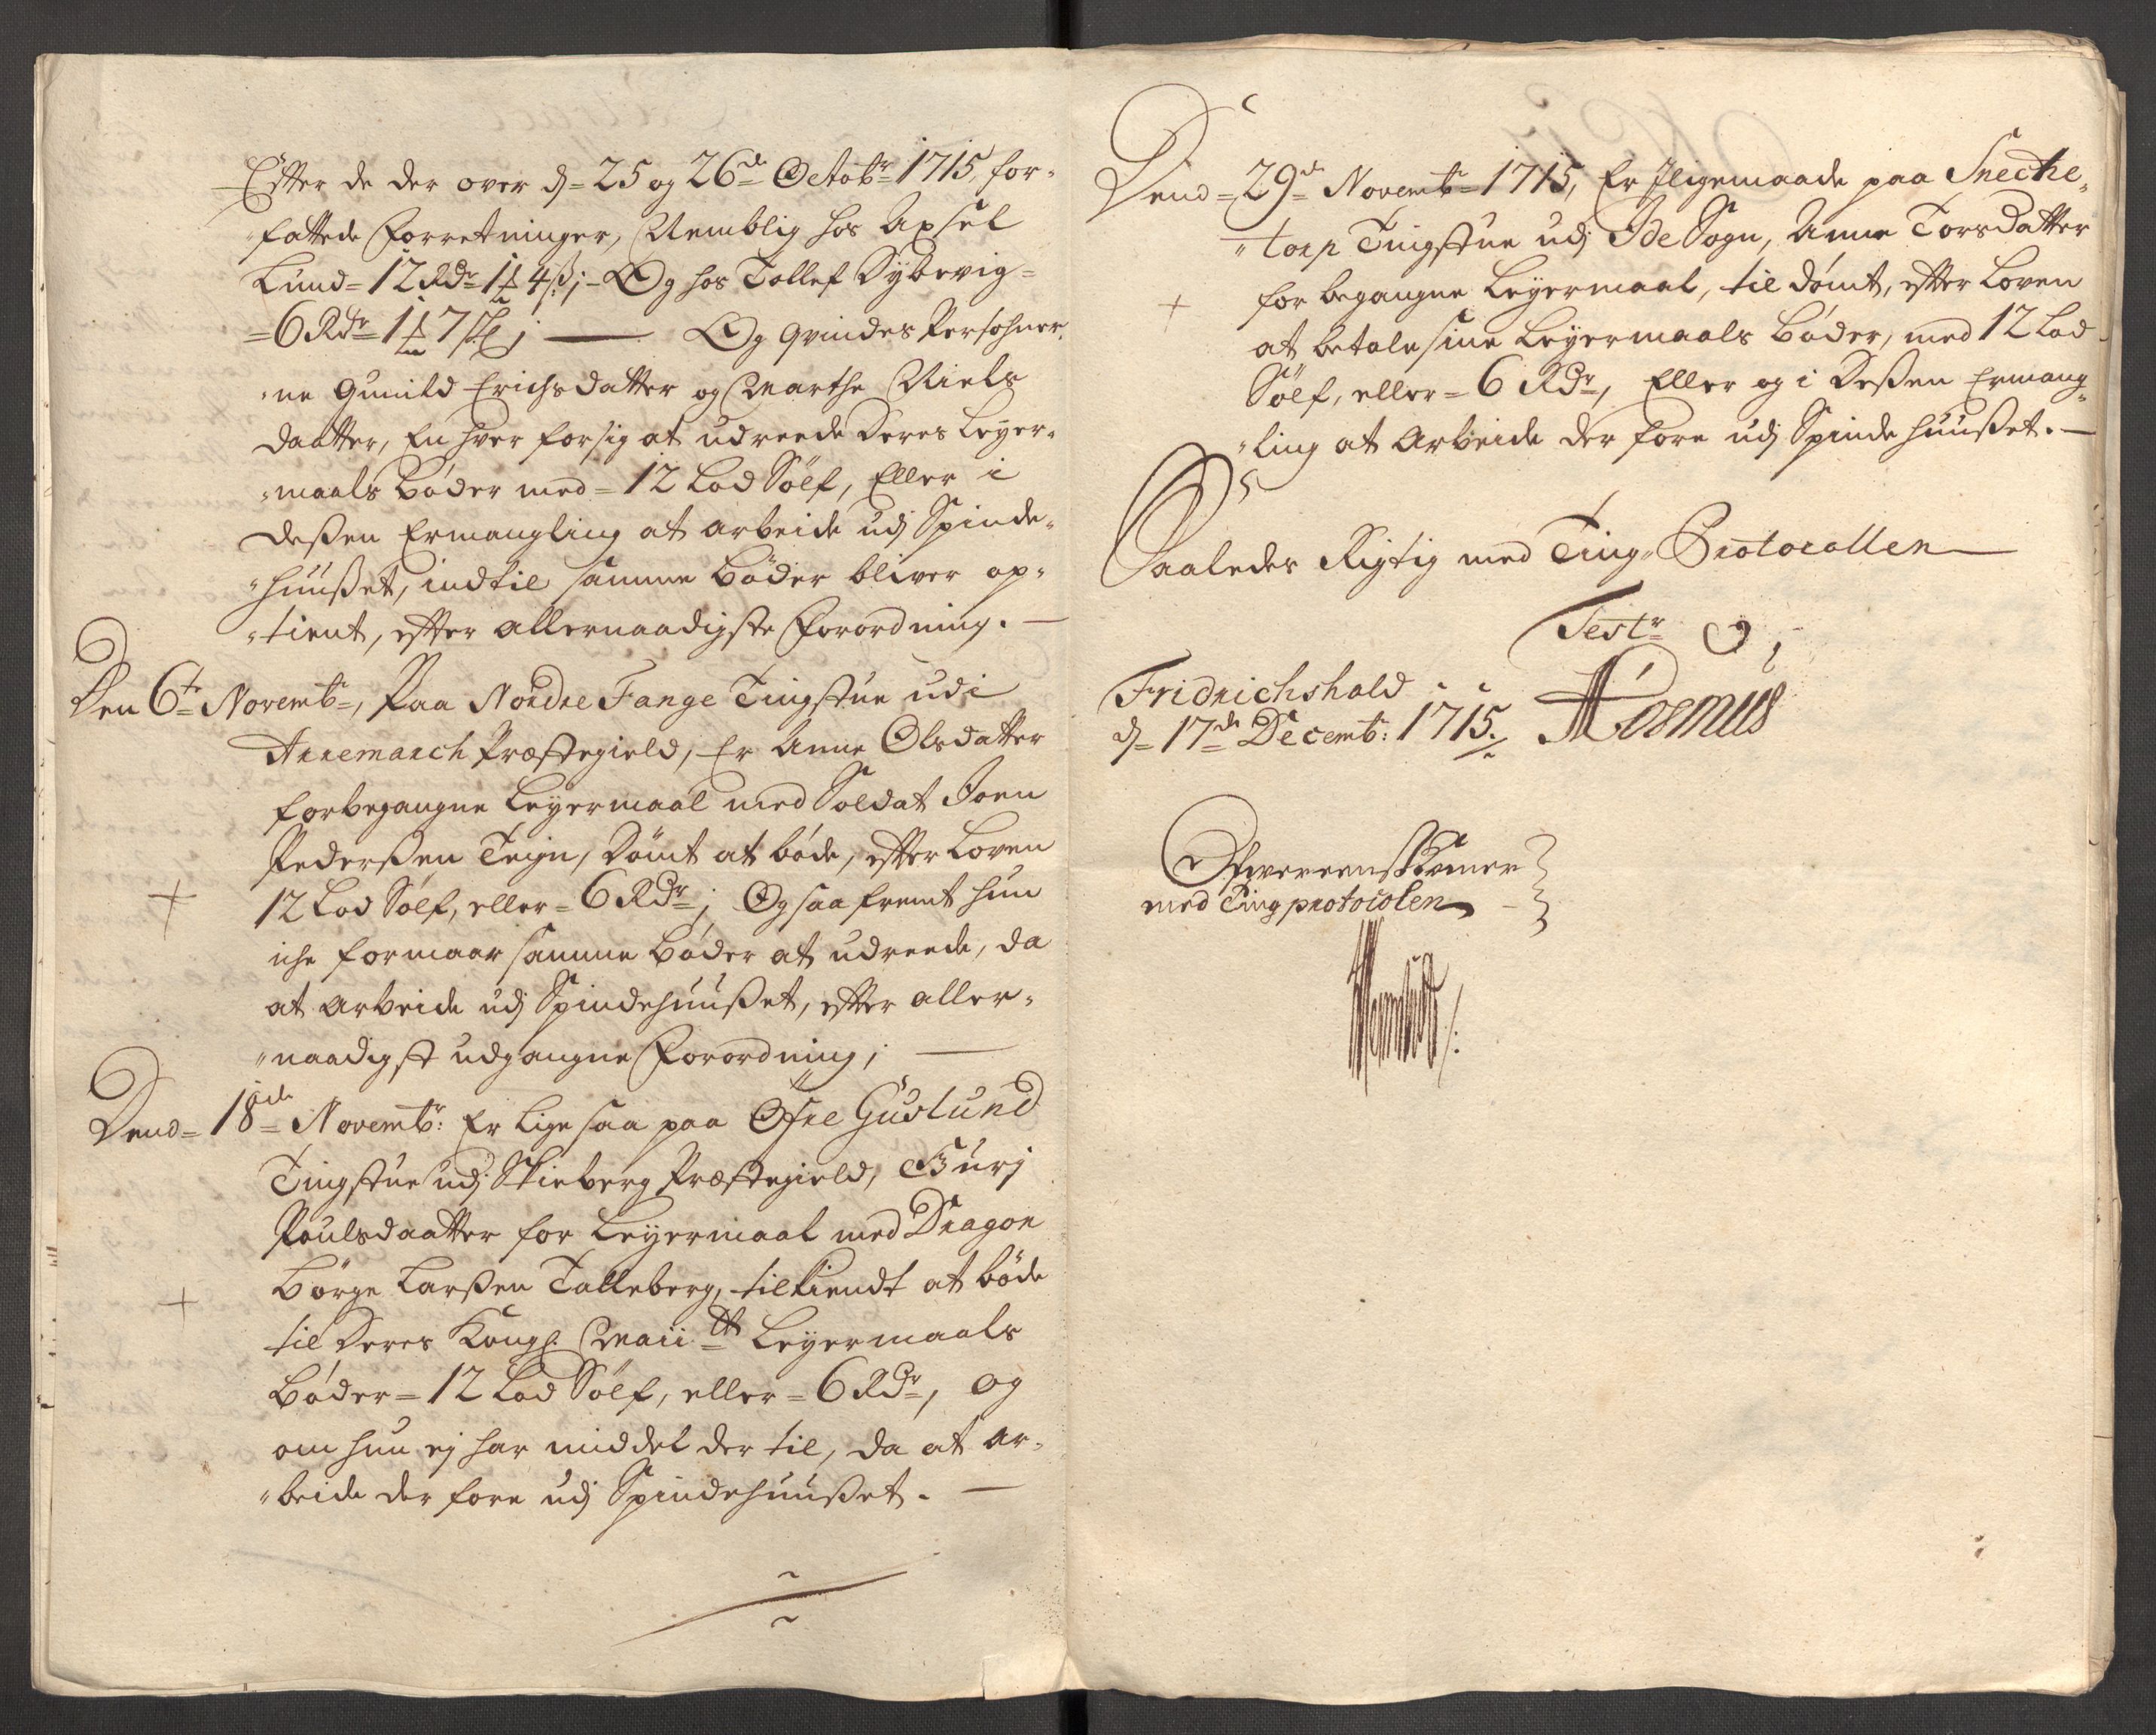 Efter de der over d= 25 og 26de Octobr 1715, for-
fattede Forretninger, Nemblig hos Axsel
Lund= 12 Rdr 1 4 ß; Og hos Tollef Dybevig=
=6 Rdr 1 7 ß; — Og qvindes Persohner,
ne Gunild Erichsdatter og Marthe Niels
daatter, En hver for sig at udreede deres Leyer-
maals Bøder med= 12 Lod Sølf, Eller i
deßen Ermangling at arbeide udj Spinde-
huußet, indtil samme Bøder bliver op-
tient, efter allernaadigste Forordning. —
Den 6te Novembr, Paa Nordre Fange Tingstue udi
Arremarch Præstegield, Er Anne Olsdatter
for begangne Leyermaal med Soldat Joen
Pederßen Teyn, dømt at bøde, efter Loven
+ 12 Lod Sølf, eller= 6 Rdr; Og saa fremt hun
iche formaar samme Bøder at udreede, da
at arbeide udj Spindehuußet, efter aller-
naadigst udgangne Forordning; —
Dend= 18de Novembr: Er lige saa paa Øfre Guslund
Tingstue udj Skieberg Præstegield, Burj
Poulsdaatter for Leyermaal med Dragon
+ Børge Larßen Talleberg, tilkiendt at bøde
til Deres Kongl. Maiitt Leyermaals
Bøder= 12 Lod Sølf, eller= 6 Rdr, og
om hun ej har middel der til, da at ar-
beide der fore udj Spindehuußet. —
Dend= 29de Novembr 1715, Er Iligemaade paa Sneche-
torp Tingstue udj Ide Sogn, Anne Torsdatter
+ for begangne Leyermaal, til dømt, efter Loven
at betale sine Leyermaals Bøder, med 12 Lod
Sølf, eller= 6 Rdr, Eller og i Deßen Ermang-
ling at arbeide der fore udj Spinde huußet. —
Saaledes Rigtig med Ting-Protocollen
Testr
Fridrichshald
d= 17de Decembr: 1715. Rosmus
Ofvereenskomer
med Tingprotocolen